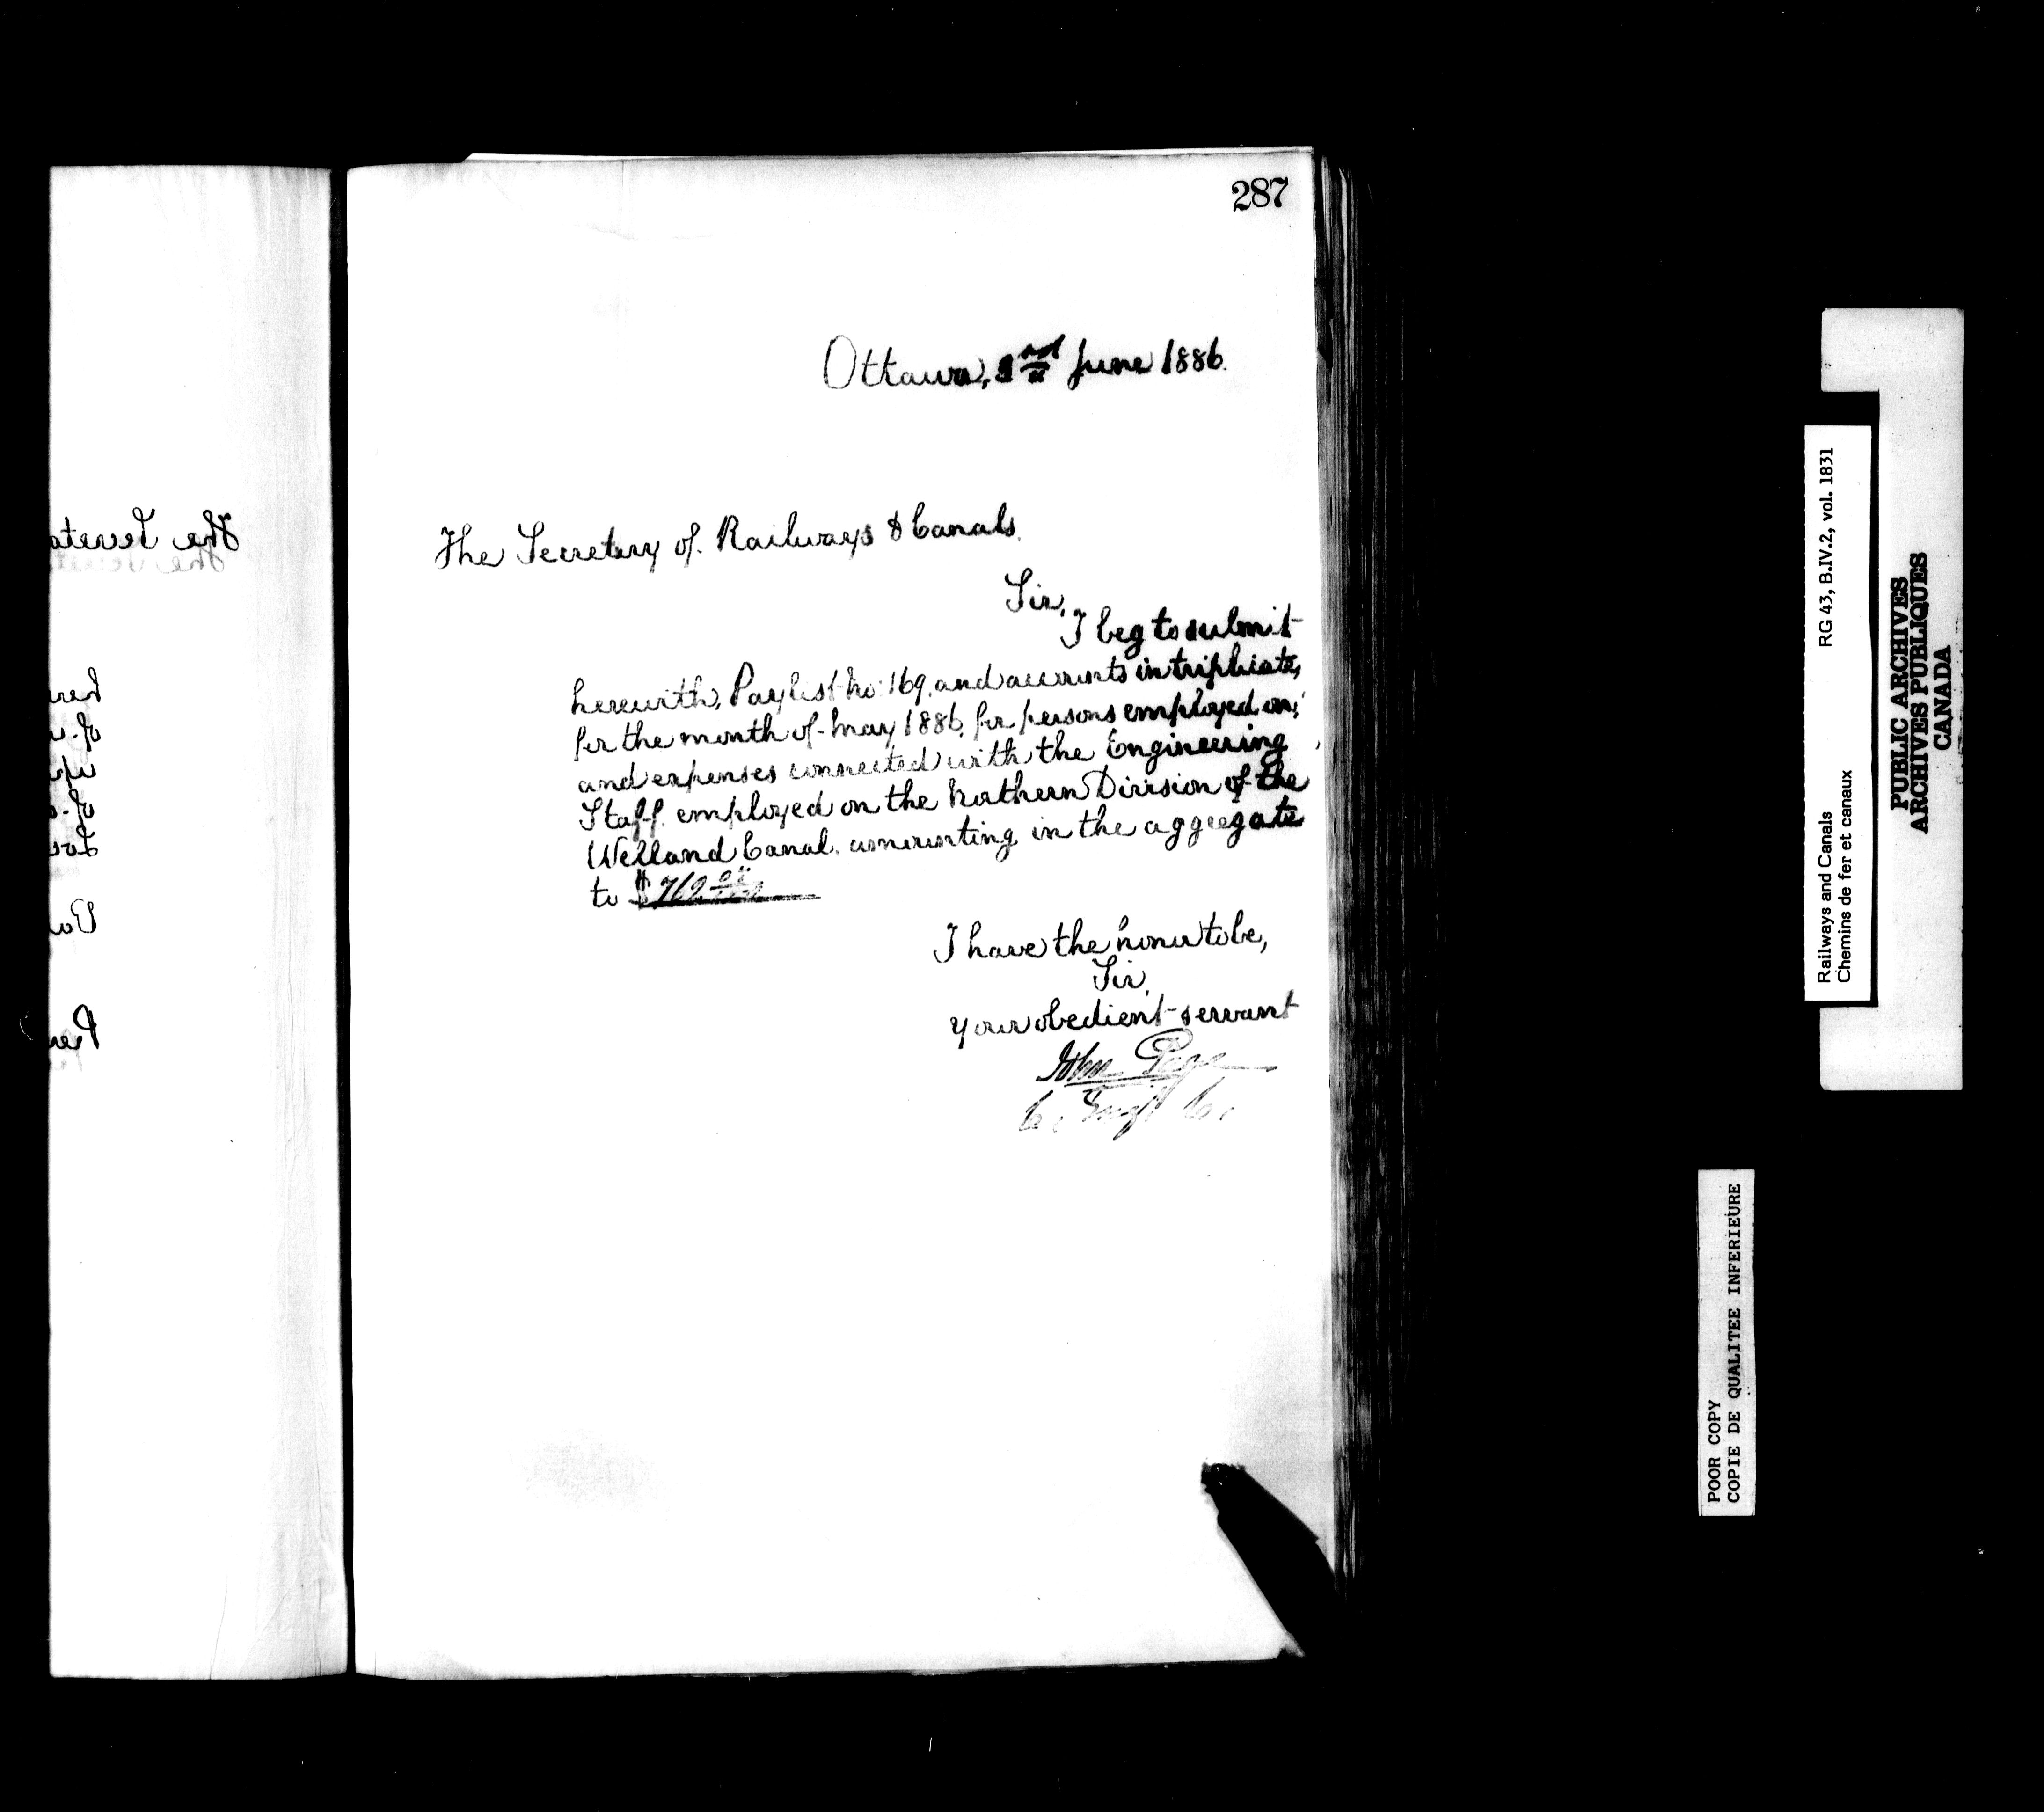 287
Ottawa, 2nd June 1886.
The Secretary of Railways & Canals.
Sir,
I beg to submit
herewith, Paylist No. 169, and accounts in triplicate,
for the month of May 1886, for persons employed on,
and expenses connected with the Engineering
Staff employed on the Northern Division of the
Welland Canal, amounting in the aggregate
to $762
I have the honor to be,
Sir,
your obedient servant
John Page
C. Engr C.
The Secreta
Railways and Canals RG 43, B.IV.2, vol. 1831
Chemins de fer et canaux
PUBLIC ARCHIVES
ARCHIVES PUBLIQUES
CANADA
POOR COPY
COPIE DE QUALITEE INFERIEURE